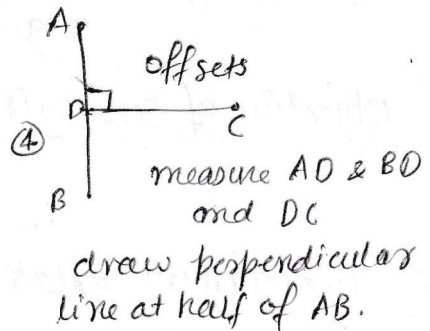 A
offsets
D
C
④
measure AD & BD
B
and DC
draw perpendicular
line at half of AB.